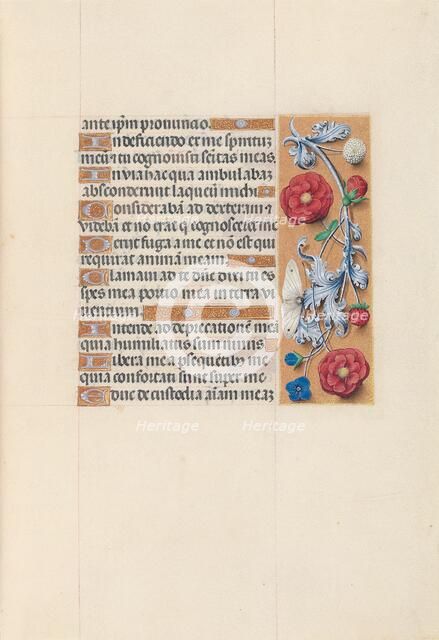 ante ipm pronuncio.
In deficiendo ex me spiritum
meū et tu cognovisti seitas meas.
In via hac qua ambulabaz
absconderunt laqueū michi
Considerabā ad dexteram et
videbā et non erat q̄ cognosceret me
Perijt fuga a me et nō est qui
requirat animā meam.
Clamavi ad te dnē dixi tu es
spes mea portio mea in terra vi
uentium.
Intende ad deprecationē meā
quia humiliatus sum nimis
Libera me a psequētibus me
quia confortati sunt super me
Educ de custodia aīam meaz
Heritage
Heritage
Heritage
Heritage
Heritage
Heritage